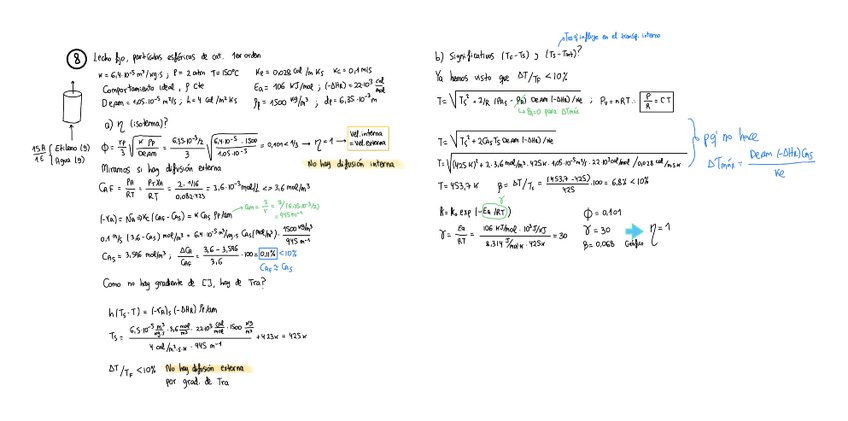 8 Lecho fijo, partículas esféricas de cat. 1er orden
K = 6,4·10⁻⁵ m³/kg·s ; P = 2 atm T = 150°C Ke = 0,028 cal/m K s Kc = 0,1 m/s
Comportamiento ideal, ρ cte Ea = 106 KJ/mol ; (-ΔHR) = 22·10³ cal/mol
Deam = 1,05·10⁻⁵ m²/s ; h = 4 cal/m² K s ρp = 1500 kg/m³ ; dp = 6,35·10⁻³ m
15 A / 1 E Etileno (g) Agua (g)
a) η (isotermo)?
ϕ = rp/3 √(K ρp/Deam) = (6,35·10⁻³/2)/3 √(6,4·10⁻⁵·1500/1,05·10⁻⁵) = 0,101 < 1/3 → η = 1 → Vel. interna = vel. externa
No hay difusión interna
Miramos si hay difusión externa
CAF = PA/RT = PT XA/RT = 2·1/16/0,082·423 = 3,6·10⁻³ mol/L <> 3,6 mol/m³
(-rA) = NA → Kc (CAG - CAS) = K CAS ρp/am
am = 3/r = 3/(6,35·10⁻³/2) = 945 m⁻¹
0,1 m/s (3,6 - CAS) mol/m³ = 6,4·10⁻⁵ m³/kg·s CAS (mol/m³) · 1500 kg/m³ / 945 m⁻¹
CAS = 3,596 mol/m³ ; ΔCA/CAG = 3,6 - 3,596/3,6 · 100 = 0,11% < 10%
CAF ≈ CAS
Como no hay gradiente de CJ, hay de Tra?
h (TS - T) = (-rA)S (-ΔHR) ρp/am
TS = 6,5·10⁻⁵ m³/kg·s · 3,6 mol/m³ · 22·10³ cal/mol · 1500 kg/m³ / 4 cal/m²·s·K · 945 m⁻¹ + 423K = 425K
ΔT/TF < 10% No hay difusión externa
por grad. de Tra
b) Significativos (TC - TS) y (TS - Tint)?
Tra q influye en el transp. interno
Ya hemos visto que ΔT/TF < 10%
T = √(TS² + 2/R (PAS - PA) Deam (-ΔHR)/Ke) ; PV = nRT ; P/R = CT
PA = 0 para ΔTmáx
T = √(TS² + 2CAS TS Deam (-ΔHR)/Ke)
T = √((425K)² + 2·3,6 mol/m³·425K·1,05·10⁻⁵ m²/s·22·10³ cal/mol / 0,028 cal/m·s·K)
T = 453,7 K β = ΔT/TS = (453,7 - 425)/425 · 100 = 6,8% < 10%
pq no hace
ΔTmáx = Deam (-ΔHR) CAS / Ke
K = K₀ exp (-Ea/RT)
γ
γ = Ea/RT = 106 KJ/mol · 10³ J/KJ / 8,314 J/mol·K · 425K = 30
ϕ = 0,101
γ = 30
β = 0,068
Gráfica
η = 1